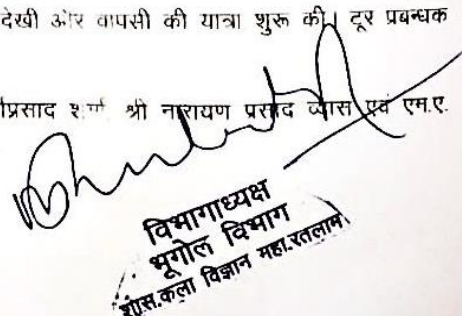 देखी और वापसी की यात्रा शुरू की। टूर प्रबन्धक
प्रसाद श्री नारायण प्रसाद व्यास एवं एम.ए.
विभागाध्यक्ष
भूगोल विभाग
शास.कला विज्ञान महा.रतलाम